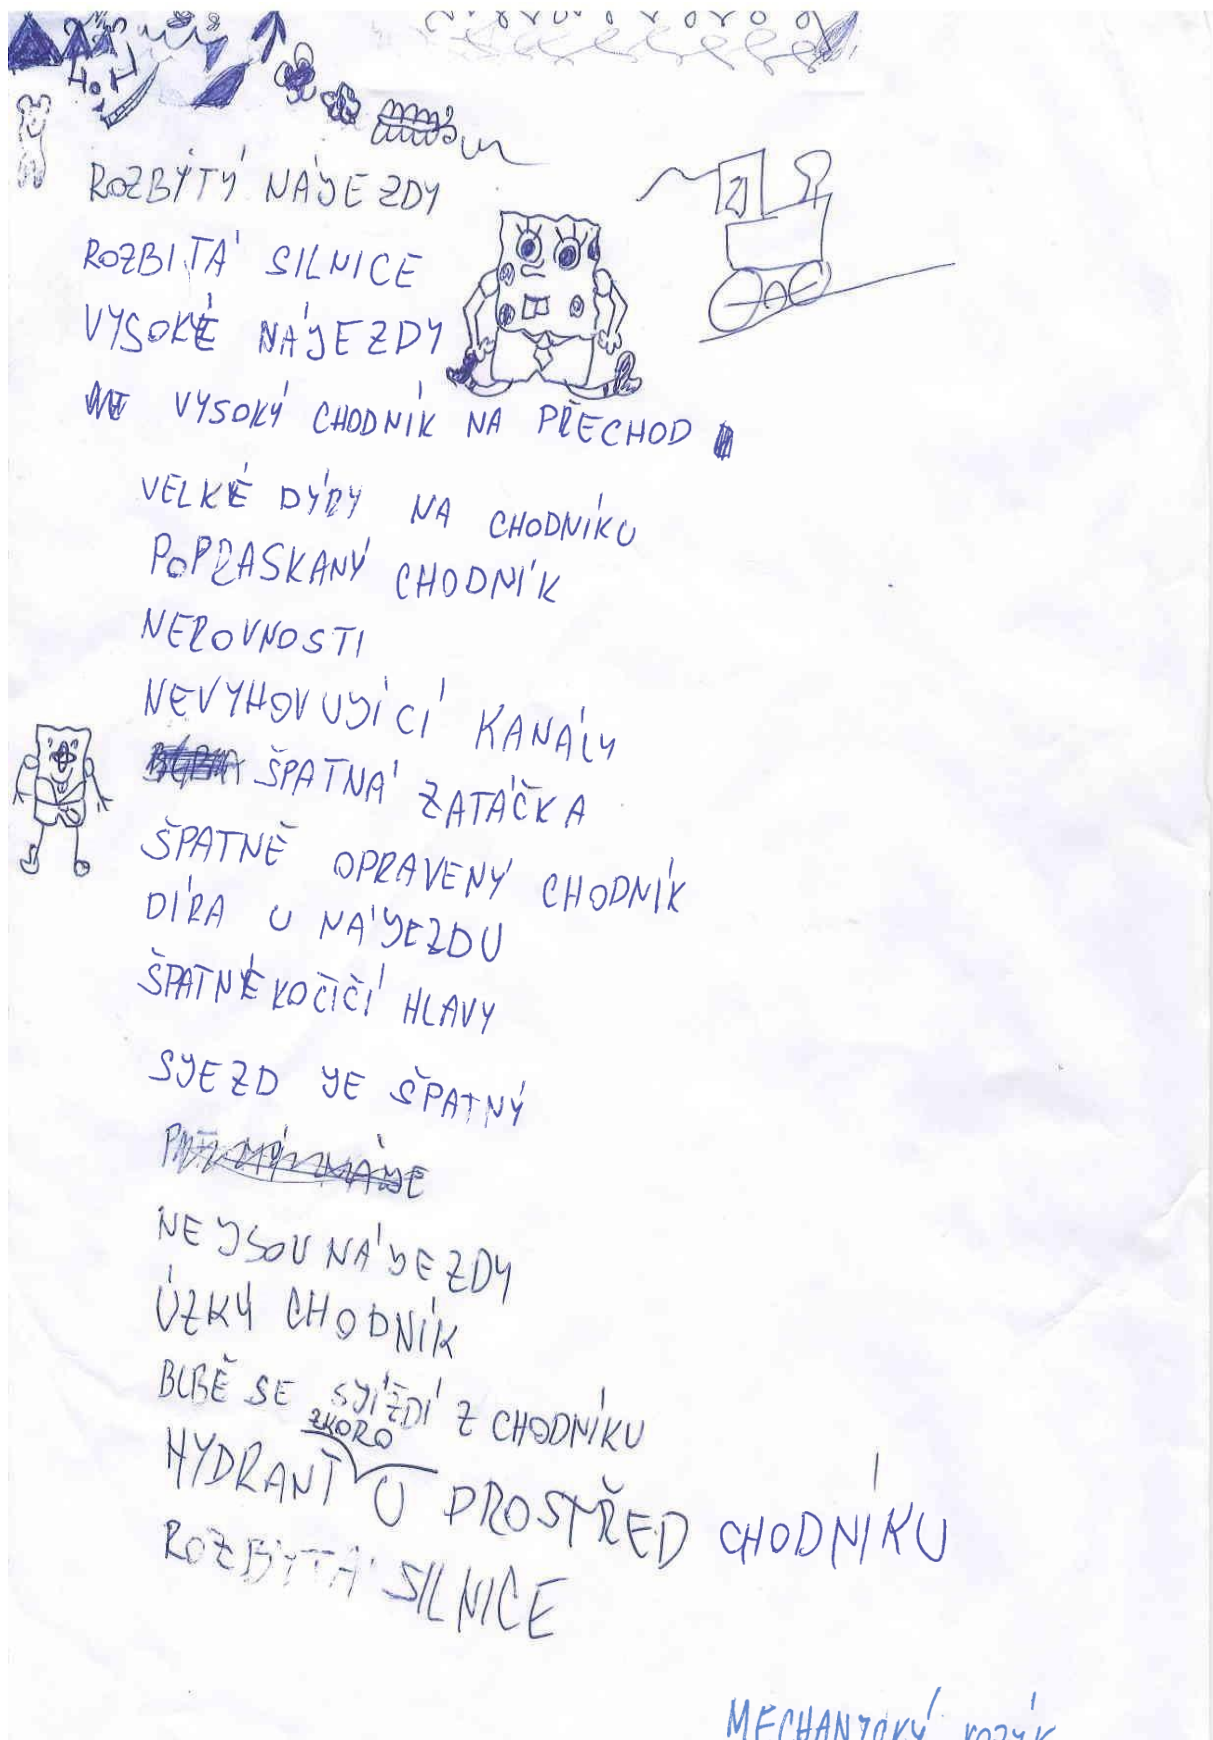 ROZBYTÝ NÁJEZDY
ROZBITÁ SILNICE
VYSOKÉ NÁJEZDY
VYSOKÝ CHODNÍK NA PŘECHOD
VELKÉ DÝRY NA CHODNÍKU
POPRASKANÝ CHODNÍK
NEROVNOSTI
NEVYHOVUJÍCÍ KANÁLY
ŠPATNÁ ZATÁČKA
ŠPATNĚ OPRAVENÝ CHODNÍK
DÍRA U NÁJEZDU
ŠPATNÉ KOČIČÍ HLAVY
SJEZD JE ŠPATNÝ
NEJSOU NÁJEZDY
ÚZKÝ CHODNÍK
BLBĚ SE SJÍŽDÍ Z CHODNÍKU
ZKORO
HYDRANT U PROSTŘED CHODNÍKU
ROZBYTÁ SILNICE